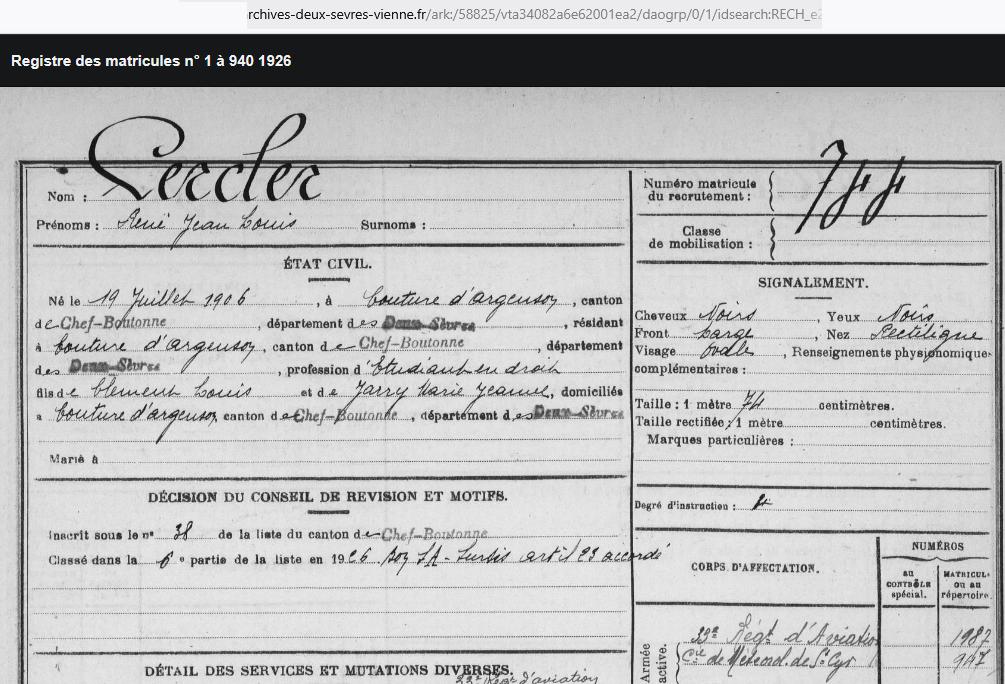 rchives-deux-sevres-vienne.fr/ark:/58825/vta34082a6e62001ea2/daogrp/0/1/idsearch:RECH_e2
Registre des matricules n° 1 à 940 1926
Nom : Lercler
Prénoms : René Jean Louis Surnoms :
ÉTAT CIVIL.
Né le 19 Juillet 1906, à Couture d'argenson, canton
de Chef-Boutonne, département des Deux-Sèvres, résidant
à Couture d'argenson, canton de Chef-Boutonne, département
des Deux-Sèvres, profession d'Etudiant en droit
fils de Clément Louis et de Jarry Marie Jeanne, domiciliés
à Couture d'argenson canton de Chef-Boutonne, département des Deux-Sèvres
Marié à
DÉCISION DU CONSEIL DE REVISION ET MOTIFS.
Inscrit sous le n° 38 de la liste du canton de Chef-Boutonne
Classé dans la 6e partie de la liste en 1926 Bon SA - Sursis art. 23 accordé
DÉTAIL DES SERVICES ET MUTATIONS DIVERSES.
33e Régt d'aviation
Numéro matricule
du recrutement : 744
Classe
de mobilisation :
SIGNALEMENT.
Cheveux Noirs, Yeux Noirs
Front large, Nez Rectiligne
Visage Ovale, Renseignements physionomiques
complémentaires :
Taille : 1 mètre 74 centimètres.
Taille rectifiée : 1 mètre centimètres.
Marques particulières :
Degré d'instruction : 4
CORPS D'AFFECTATION.
NUMÉROS
au
CONTRÔLE
spécial.
MATRICULE
ou au
répertoire.
Armée
active.
33e Régt d'Aviation 1987
Cie de Météorol. de St Cyr 947